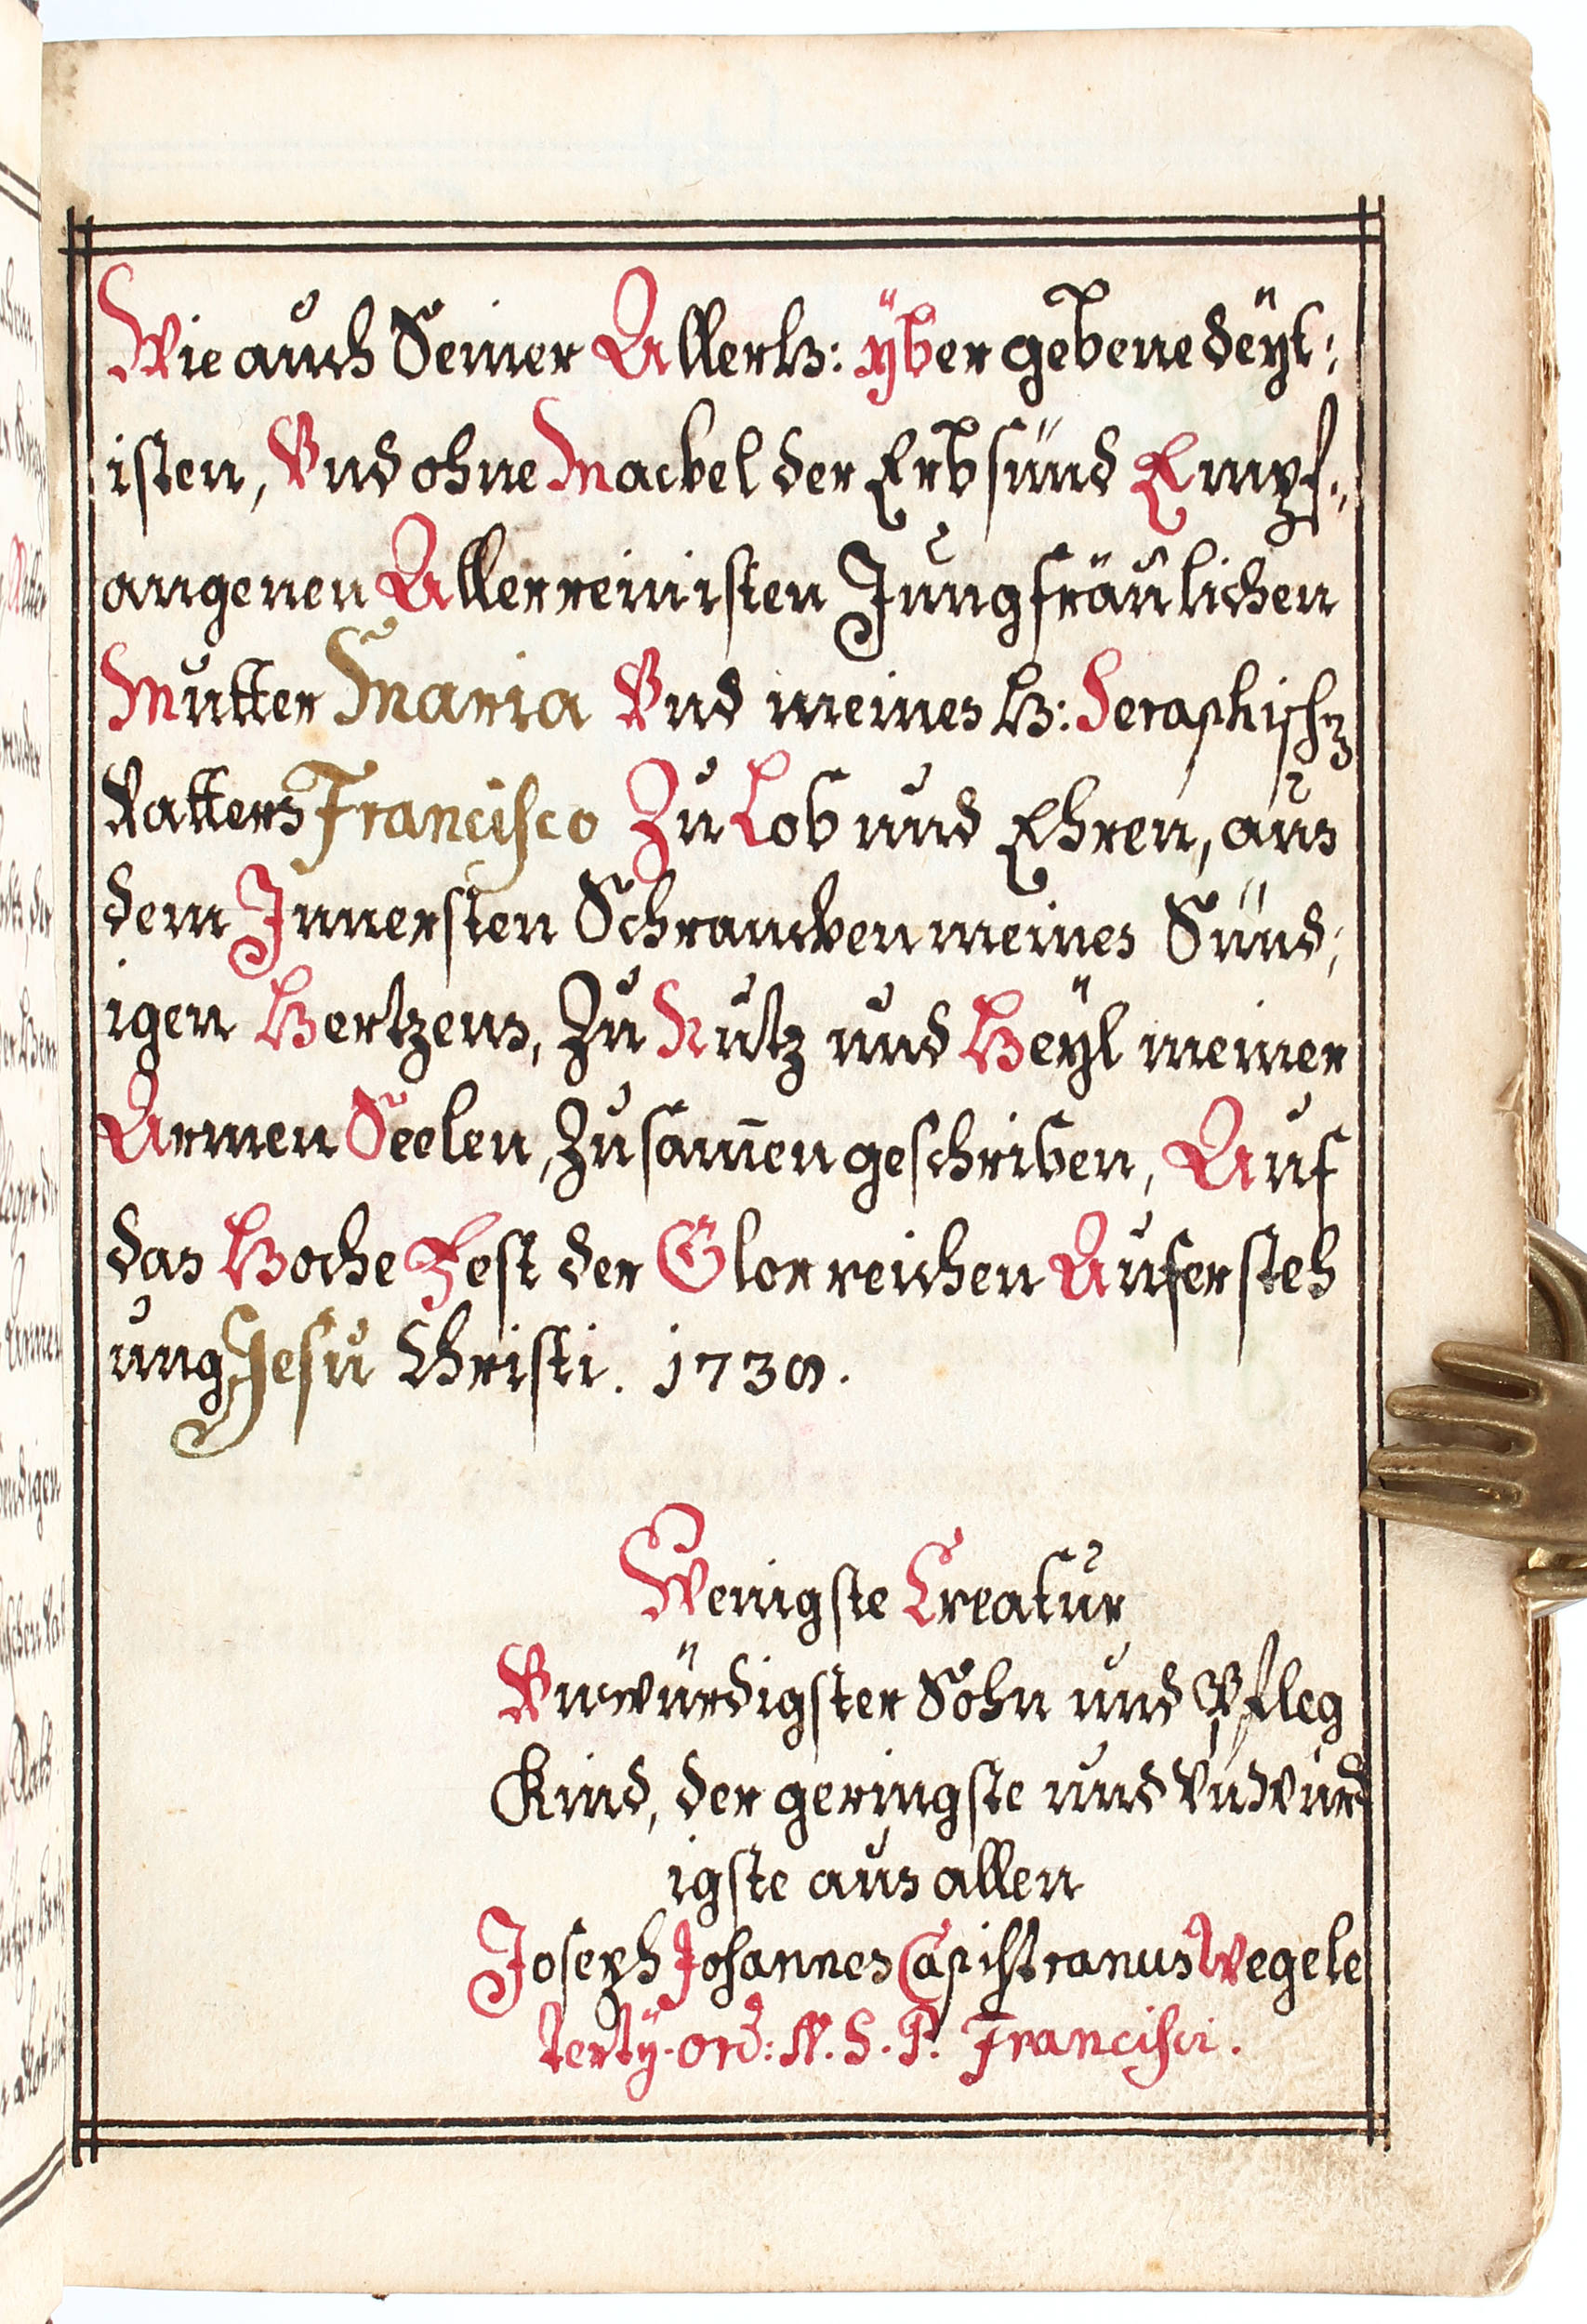 Wie auch Seiner Allerh: ÿber gebenedeÿt:
isten, Vnd ohne Mackel der Erbsünd Empf:,
angenen Allerreinisten Jungfräulichen
Mutter Maria Vnd meines H: Seraphisch
Vatters Francisco Zu Lob und Ehren, aus
dem Innersten Schrancken meines Sünd:
igen Hertzens, Zu Nutz und Heÿl meiner
Armen Seelen, Zusam̄en geschriben, Auf
das Hoche Fest der Glorreichen Aufersteh
ung Jesu Christi. 1738.
Wenigste Creatur
Vnwürdigster Sohn und Pfleg
Kind, der geringste und Vnwürd
igste aus allen
Joseph Johannes Capistranus Wegele
tertÿ. ord: N. S. P. Francisci.